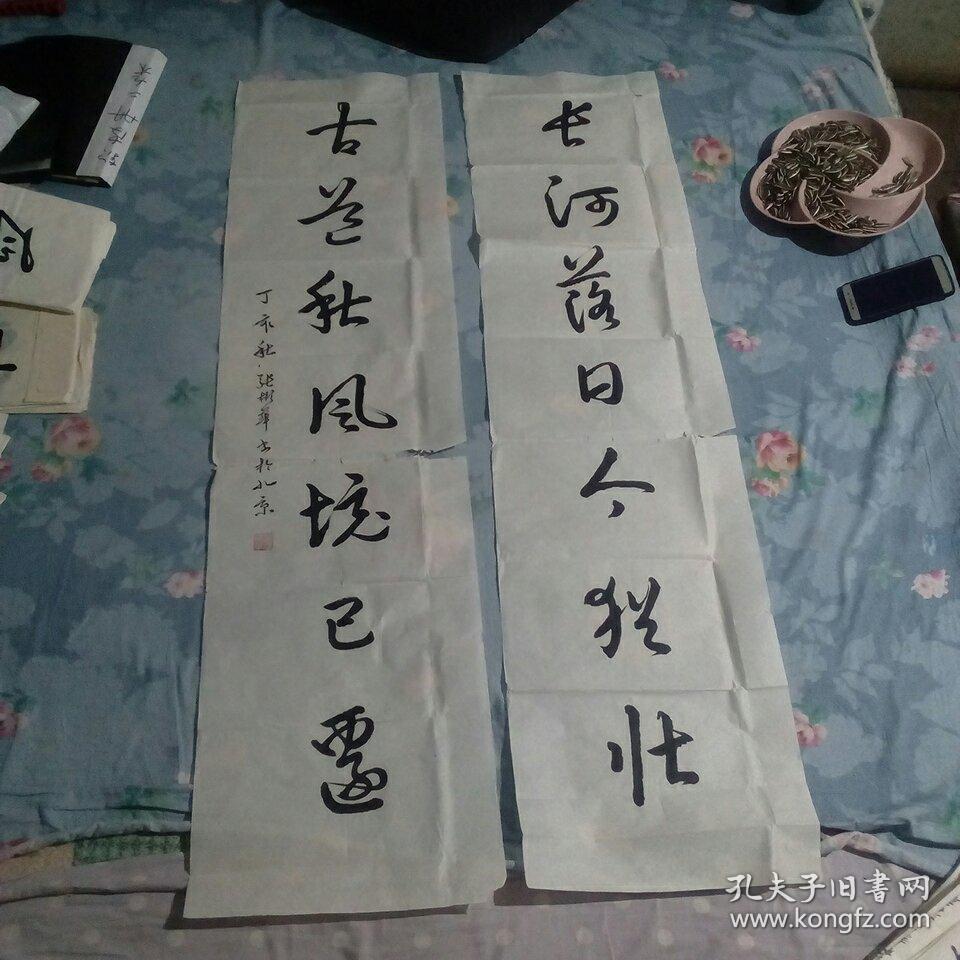 长河落日今犹壮
古道秋风境已迁
丁亥秋·张彬华书於北京
孔夫子旧書网
www.kongfz.com